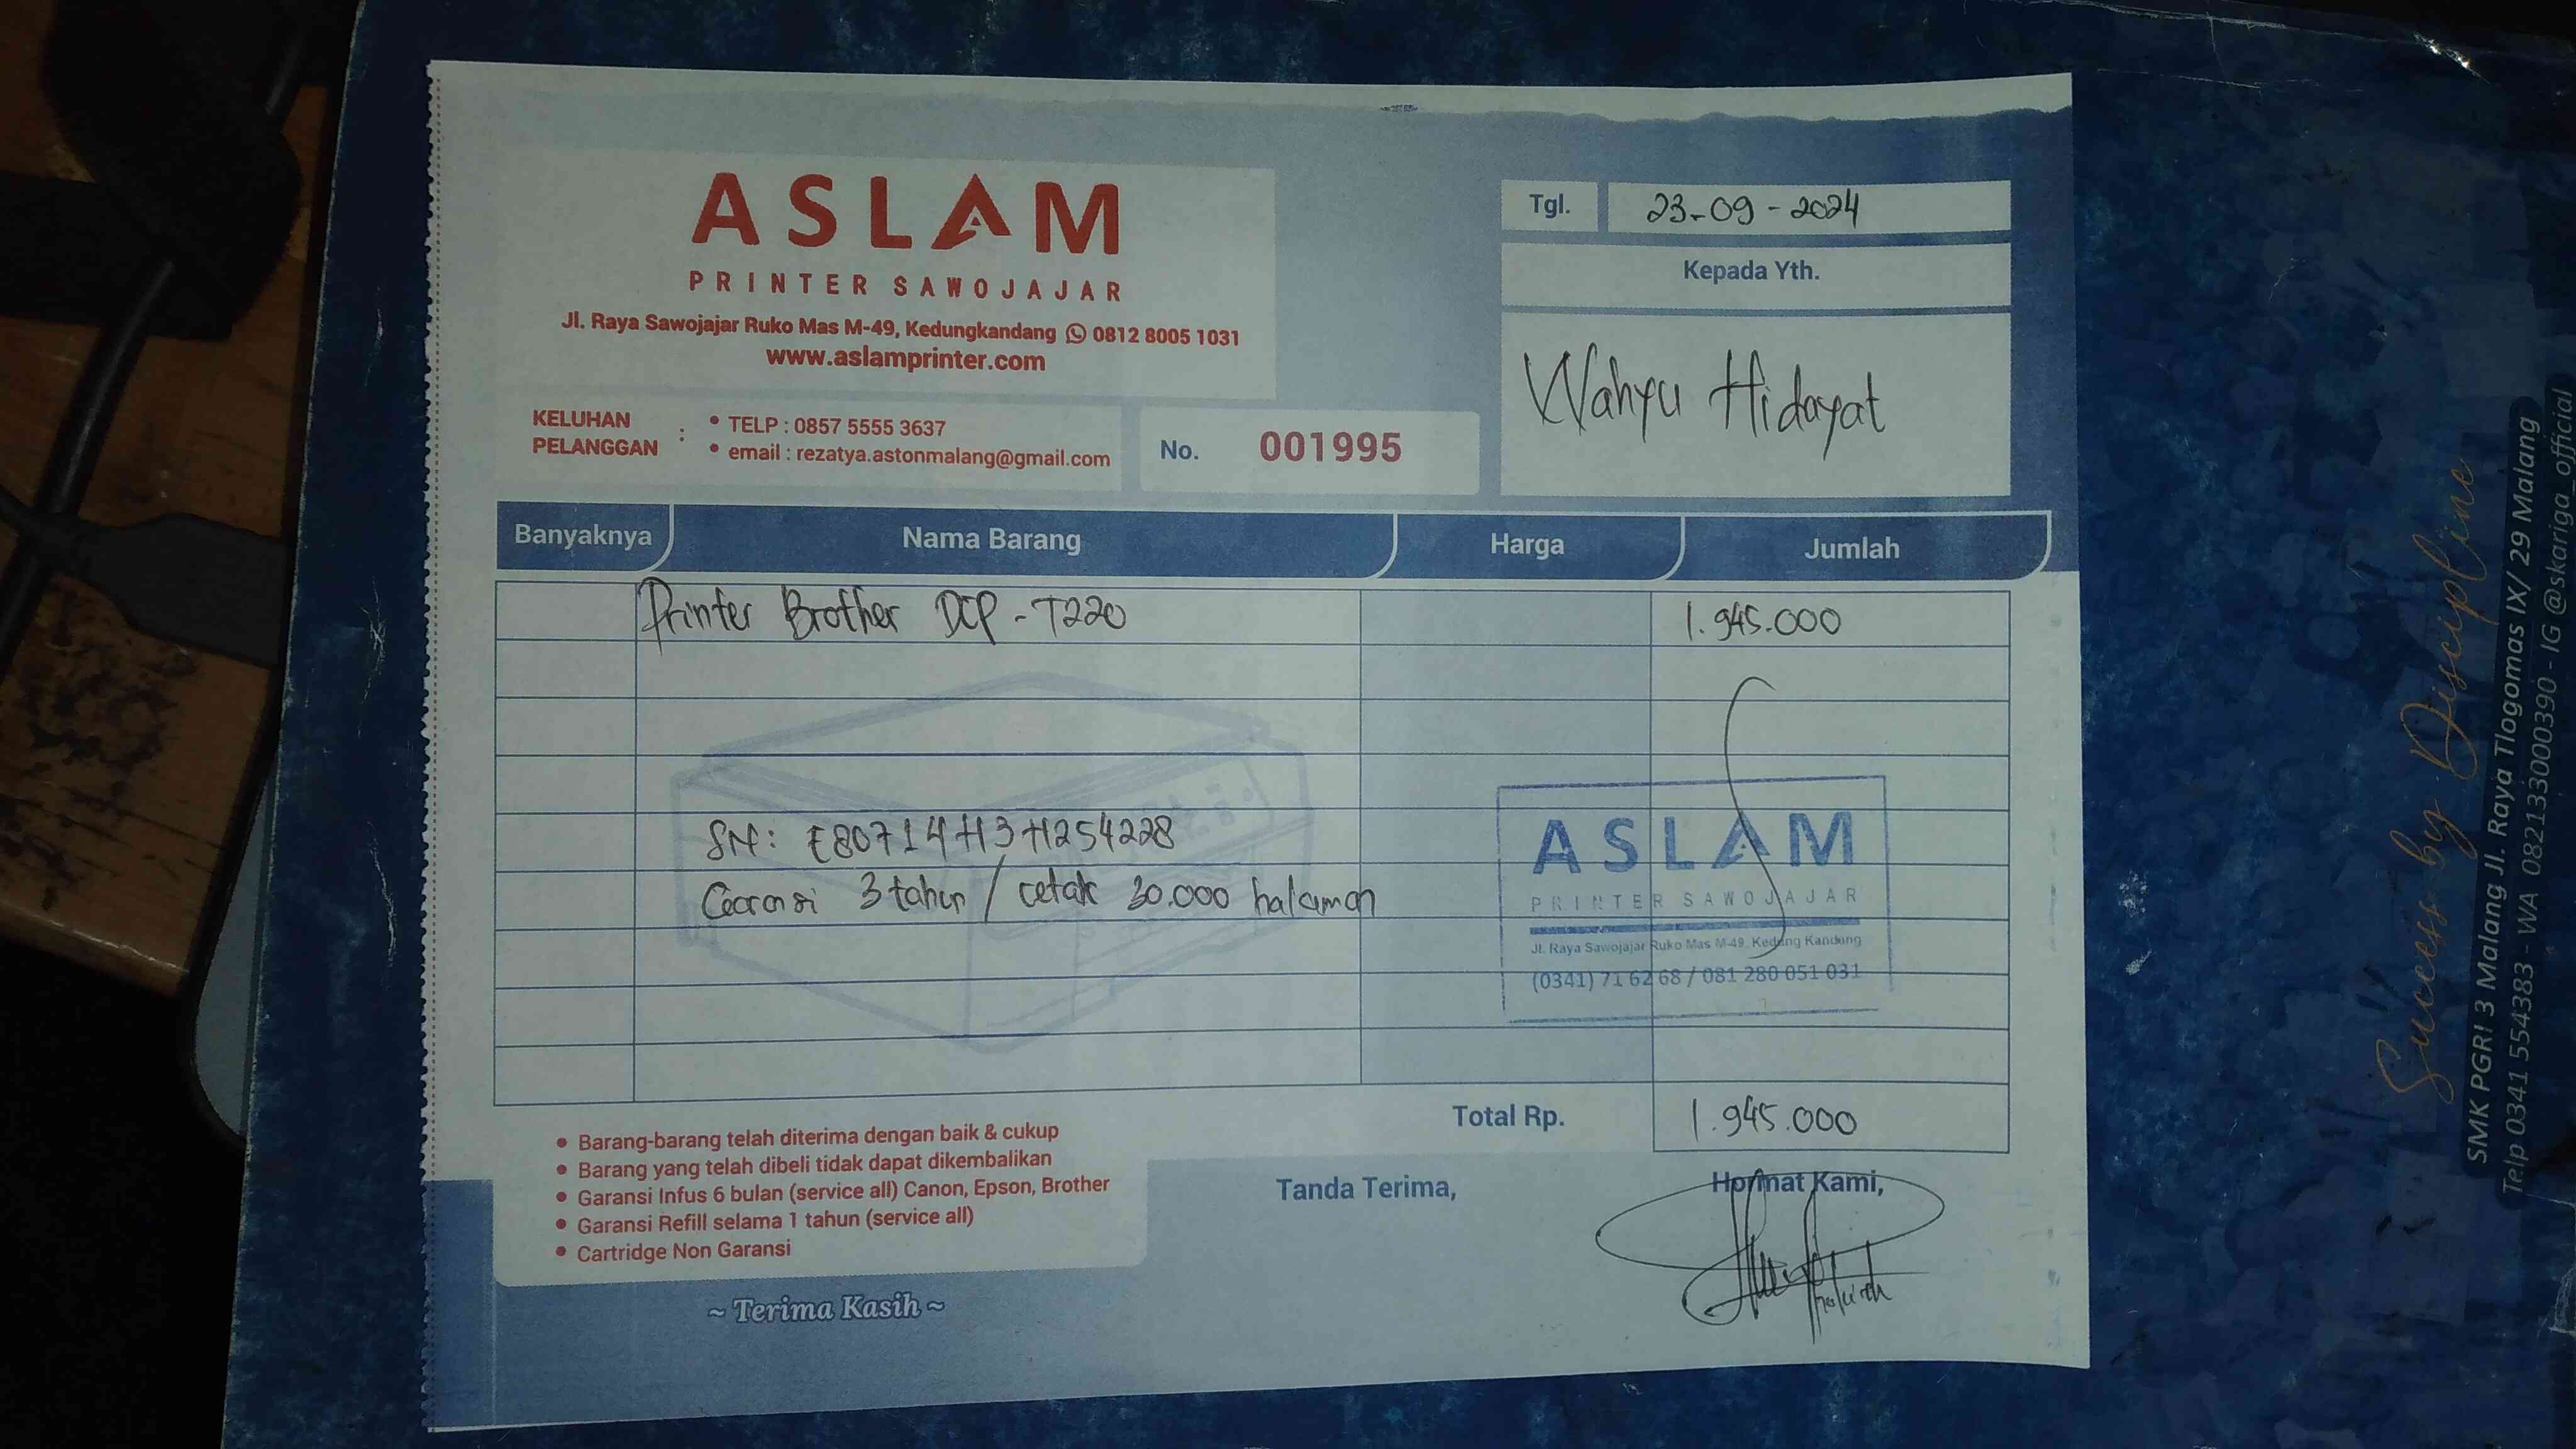 ASLAM
PRINTER SAWOJAJAR
Jl. Raya Sawojajar Ruko Mas M-49, Kedungkandang 0812 8005 1031
www.aslamprinter.com
KELUHAN PELANGGAN :
• TELP : 0857 5555 3637
• email : rezatya.astonmalang@gmail.com
No. 001995
Tgl. 23-09-2024
Kepada Yth.
Wahyu Hidayat
Banyaknya Nama Barang Harga Jumlah
Printer Brother DCP-T220 1.945.000
SN: E80714H3H254228
Garansi 3 tahun / cetak 30.000 halaman
ASLAM
PRINTER SAWOJAJAR
Jl. Raya Sawojajar Ruko Mas M-49, Kedung Kandung
(0341) 71 62 68 / 081 280 051 031
Total Rp. 1.945.000
• Barang-barang telah diterima dengan baik & cukup
• Barang yang telah dibeli tidak dapat dikembalikan
• Garansi Infus 6 bulan (service all) Canon, Epson, Brother
• Garansi Refill selama 1 tahun (service all)
• Cartridge Non Garansi
Tanda Terima,
Hormat Kami,
~ Terima Kasih ~
Success by Discipline
SMK PGRI 3 Malang Jl. Raya Tlogomas IX/ 29 Malang
Telp 0341 554383 - WA 082133000390 - IG @skariga_official